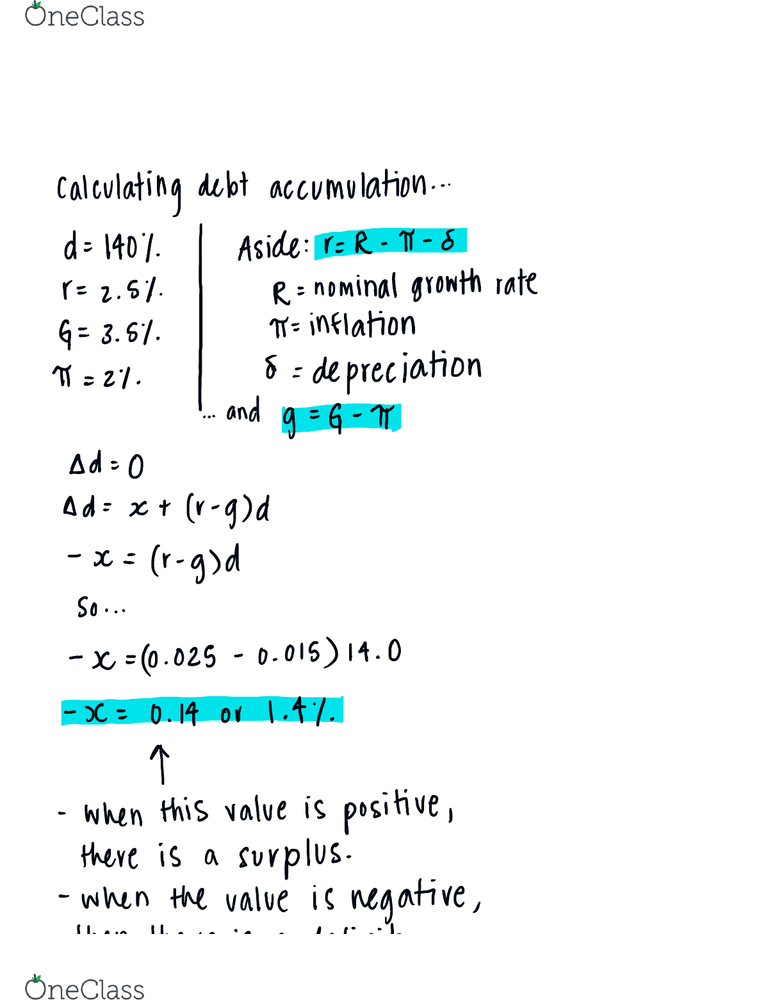 OneClass
Calculating debt accumulation...
d = 140%.
r = 2.5%.
G = 3.5%.
π = 2%.
Aside: r = R - π - δ
R = nominal growth rate
π = inflation
δ = depreciation
... and g = G - π
Δd = 0
Δd = x + (r-g)d
- x = (r-g)d
So...
- x = (0.025 - 0.015) 14.0
- x = 0.14 or 1.4%.
↑
- when this value is positive,
there is a surplus.
- when the value is negative,
OneClass